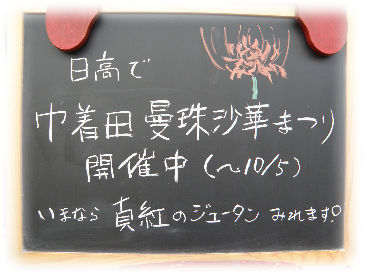 日高で
巾着田曼珠沙華まつり
開催中(〜10/5)
いまなら真紅のジュータンみれます!